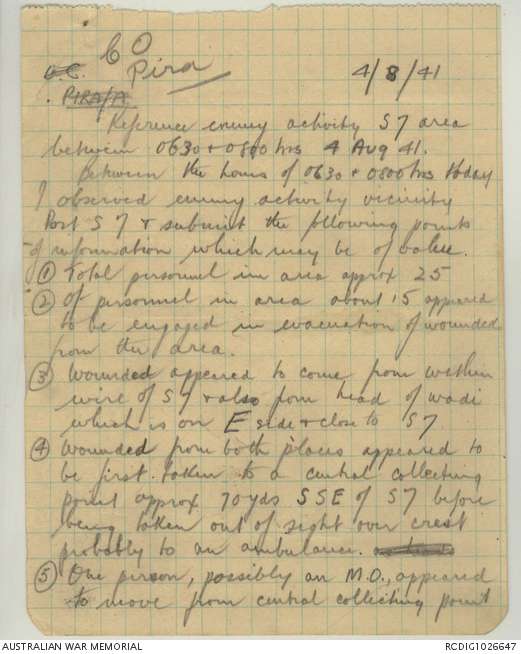 CO
O.C. Pira
PIRA/A
4/8/41
Reference enemy activity S7 area
between 0630 + 0800 hrs 4 Aug 41.
Between the hours of 0630 + 0800 hrs today
I observed enemy activity vicinity
Post S7 + submit the following points
of information which may be of value.
① Total personnel in area approx 25
② Of personnel in area about 15 appeared
to be engaged in evacuation of wounded
from the area.
③ Wounded appeared to come from within
wire of S7 + also from head of wadi
which is on E side + close to S7
④ Wounded from both places appeared to
be first taken to a central collecting
point approx 70 yds SSE of S7 before
being taken out of sight over crest
probably to an ambulance.
⑤ One person, possibly an M.O., appeared
to move from central collecting point
AUSTRALIAN WAR MEMORIAL
RCDIG1026647